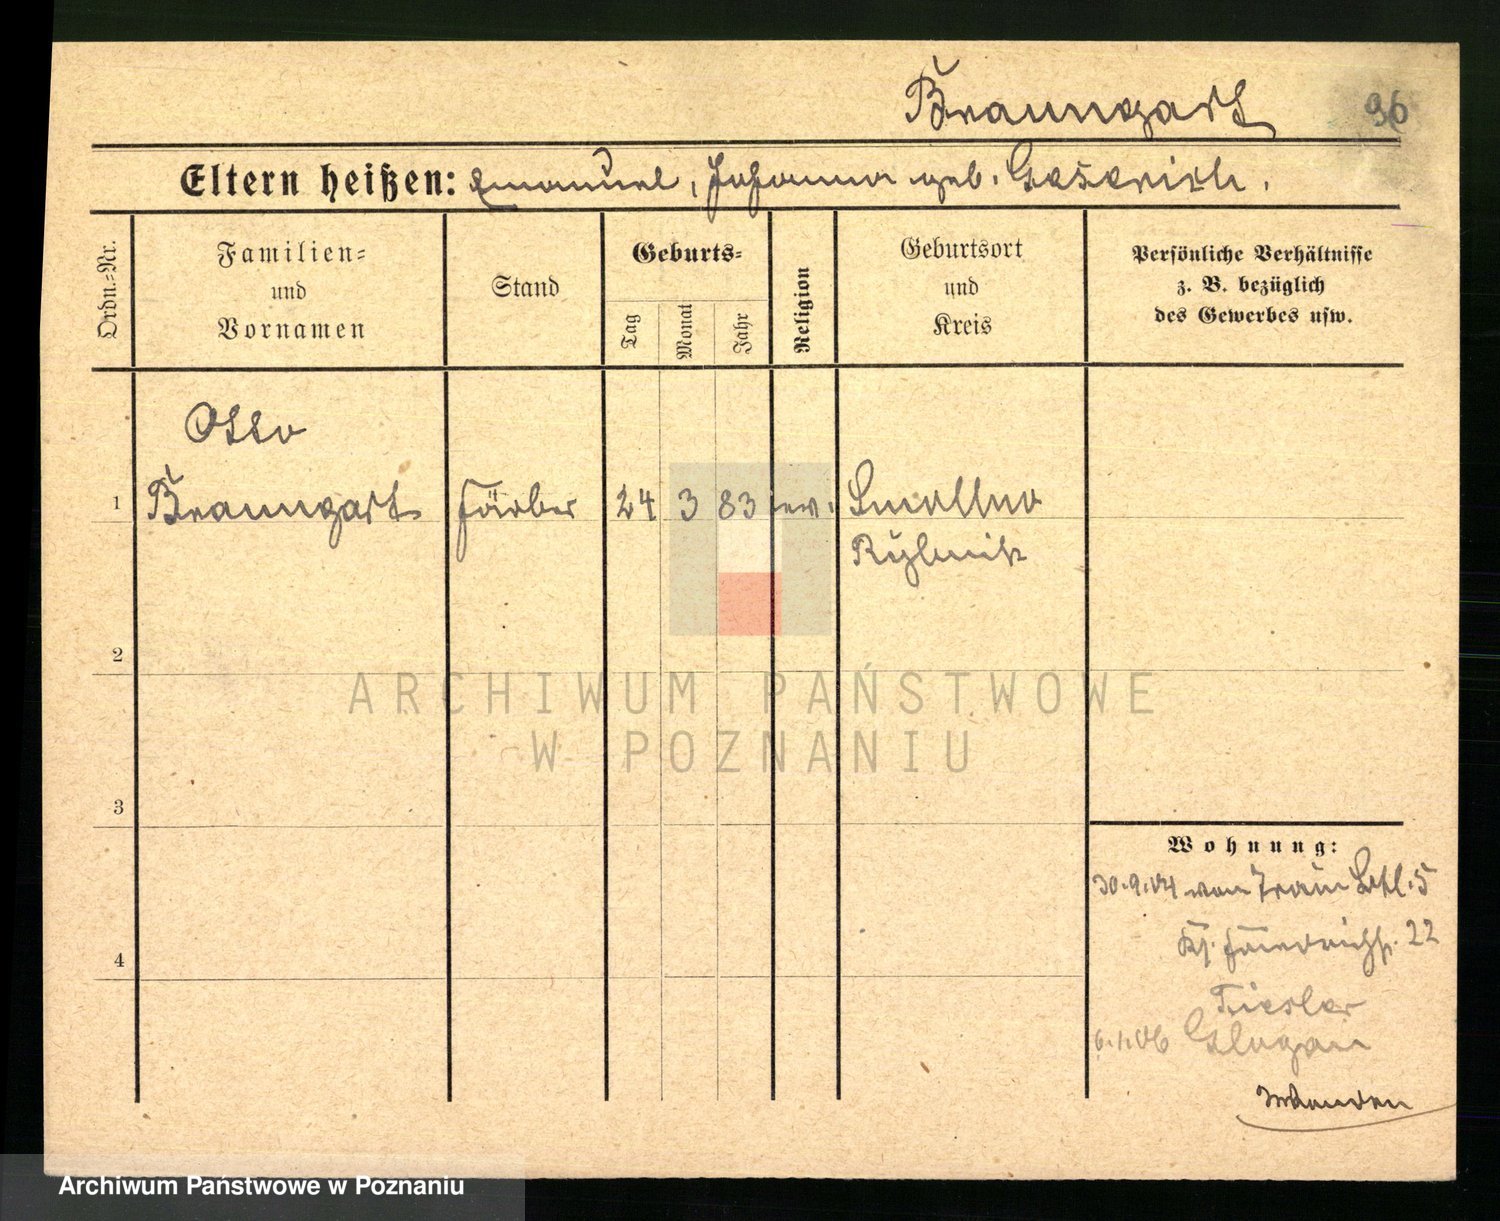 Braungart 96
Eltern heißen: Emanuel, Johanna geb.
Ordn.-Nr.
Familien-
und
Vornamen
Stand
Geburts-
Tag
Monat
Jahr
Religion
Geburtsort
und
Kreis
Persönliche Verhältnisse
z. B. bezüglich
des Gewerbes usw.
Otto
1 Braungart Färber 24 3 83 ev.
Rybnik
2
ARCHIWUM PAŃSTWOWE
W POZNANIU
3
4
Wohnung:
30.9.04 von 5
22
Tiesler
6.1.06 Glogau
Archiwum Państwowe w Poznaniu